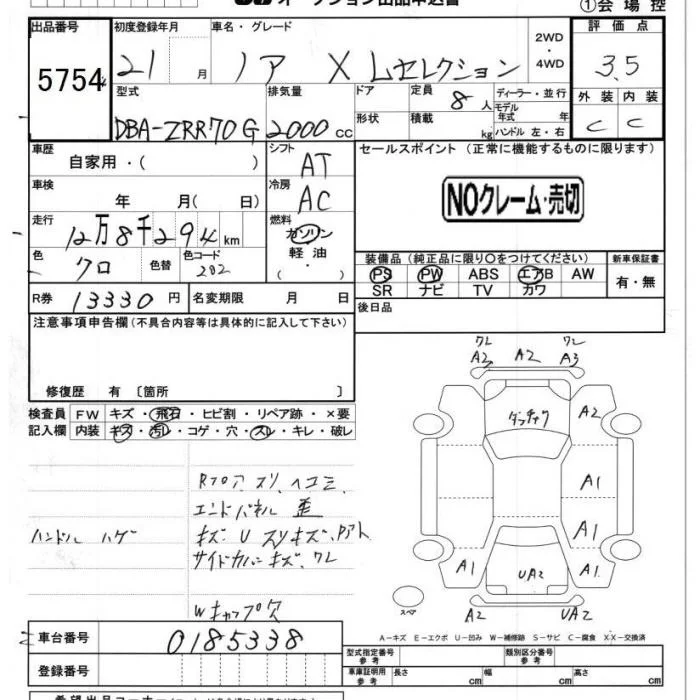 オークション出品申込書
①会場控
出品番号 初度登録年月 車名・グレード 2WD・4WD 評価点
5754 21 月 ノア X Lセレクション 3.5
型式 排気量 ドア 定員 8 人 ディーラー・並行 外装 内装
DBA-ZRR70G 2000 cc 形状 積載 kg モデル年式 年 C C
ハンドル 左・右
車歴 シフト セールスポイント (正常に機能するものに限ります)
自家用・( ) AT
車検 冷房
年 月( 日) AC NOクレーム・売切
走行 燃料
12万8千294 km ガソリン
色 色替 色コード 軽油・( )
クロ 202
装備品 (純正品に限り○をつけてください) 新車保証書
PS PW ABS エアB AW 有・無
SR ナビ TV カワ
R券 13330 円 名変期限 月 日 後日品
注意事項申告欄(不具合内容等は具体的に記入して下さい)
修復歴 有 〔箇所 〕
検査員 FW キズ・飛石・ヒビ割・リペア跡・×要
記入欄 内装 キズ・汚レ・コゲ・穴・スレ・キレ・破レ
ワレ A2 A2 ワレ A3
A2
A1
A1
A1 UA2 A1
スペア A2 UA2
Rフロア スリ、ヘコミ
エンドパネル 歪
ハンドル ハゲ
サイドカバーキズ、ワレ
Wキャップ欠
A-キズ E-エクボ U-凹み W-補修跡 S-サビ C-腐食 XX-交換済
車台番号 0185338
登録番号
型式指定番号 参考 類別区分番号 参考
車庫証明用 参考 長さ cm 幅 cm 高さ cm